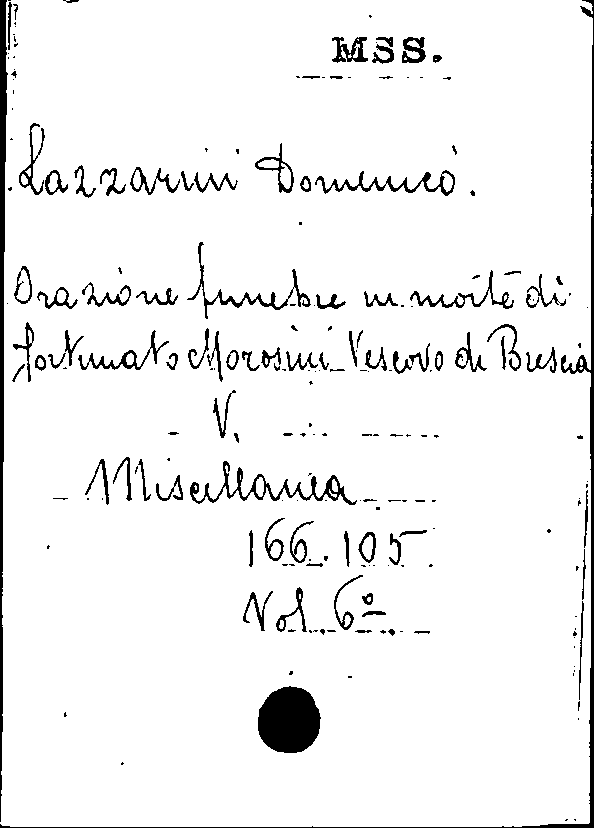 MSS.
Lazzarini Domenico.
Orazione funebre in morte di
fortunato Morosini Vescovo di Brescia
V.
Miscellanea
166.105
Vol. 6º.